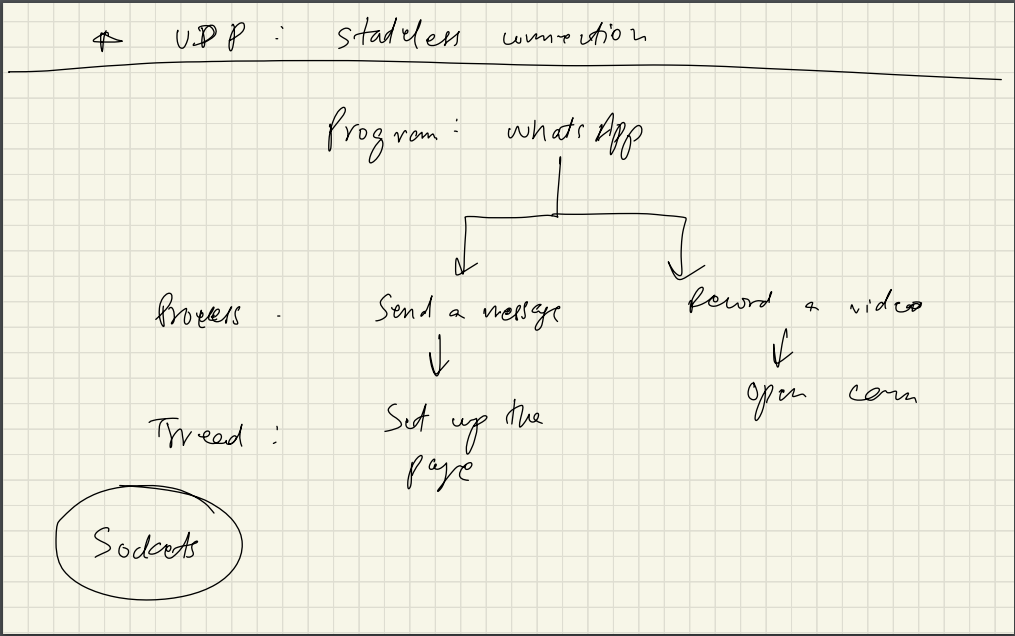 UDP : stateless connection
Program : whatsApp
Process : Send a message Record a video
open cam
Thread : Set up the
page
Sockets